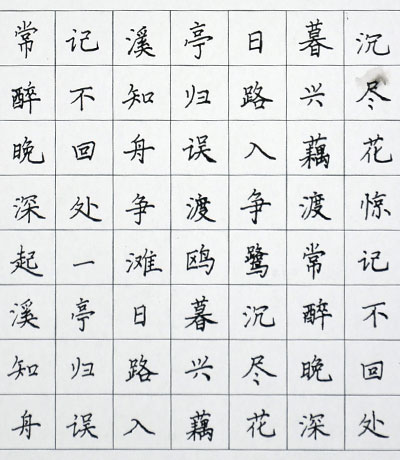 常记溪亭日暮沉
醉不知归路兴尽
晚回舟误入藕花
深处争渡争渡惊
起一滩鸥鹭常记
溪亭日暮沉醉不
知归路兴尽晚回
舟误入藕花深处